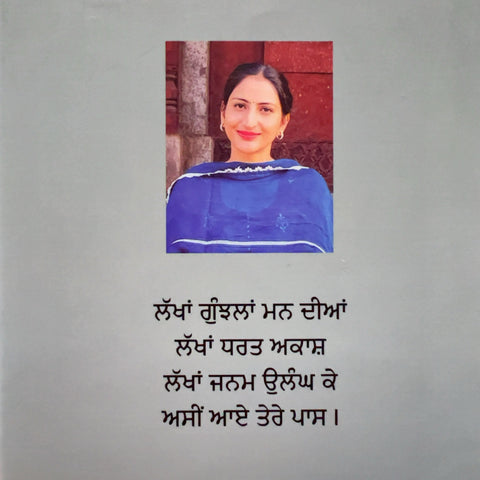 ਲੱਖਾਂ ਗੁੰਝਲਾਂ ਮਨ ਦੀਆਂ
ਲੱਖਾਂ ਧਰਤ ਅਕਾਸ਼
ਲੱਖਾਂ ਜਨਮ ਉਲੰਘ ਕੇ
ਅਸੀਂ ਆਏ ਤੇਰੇ ਪਾਸ।